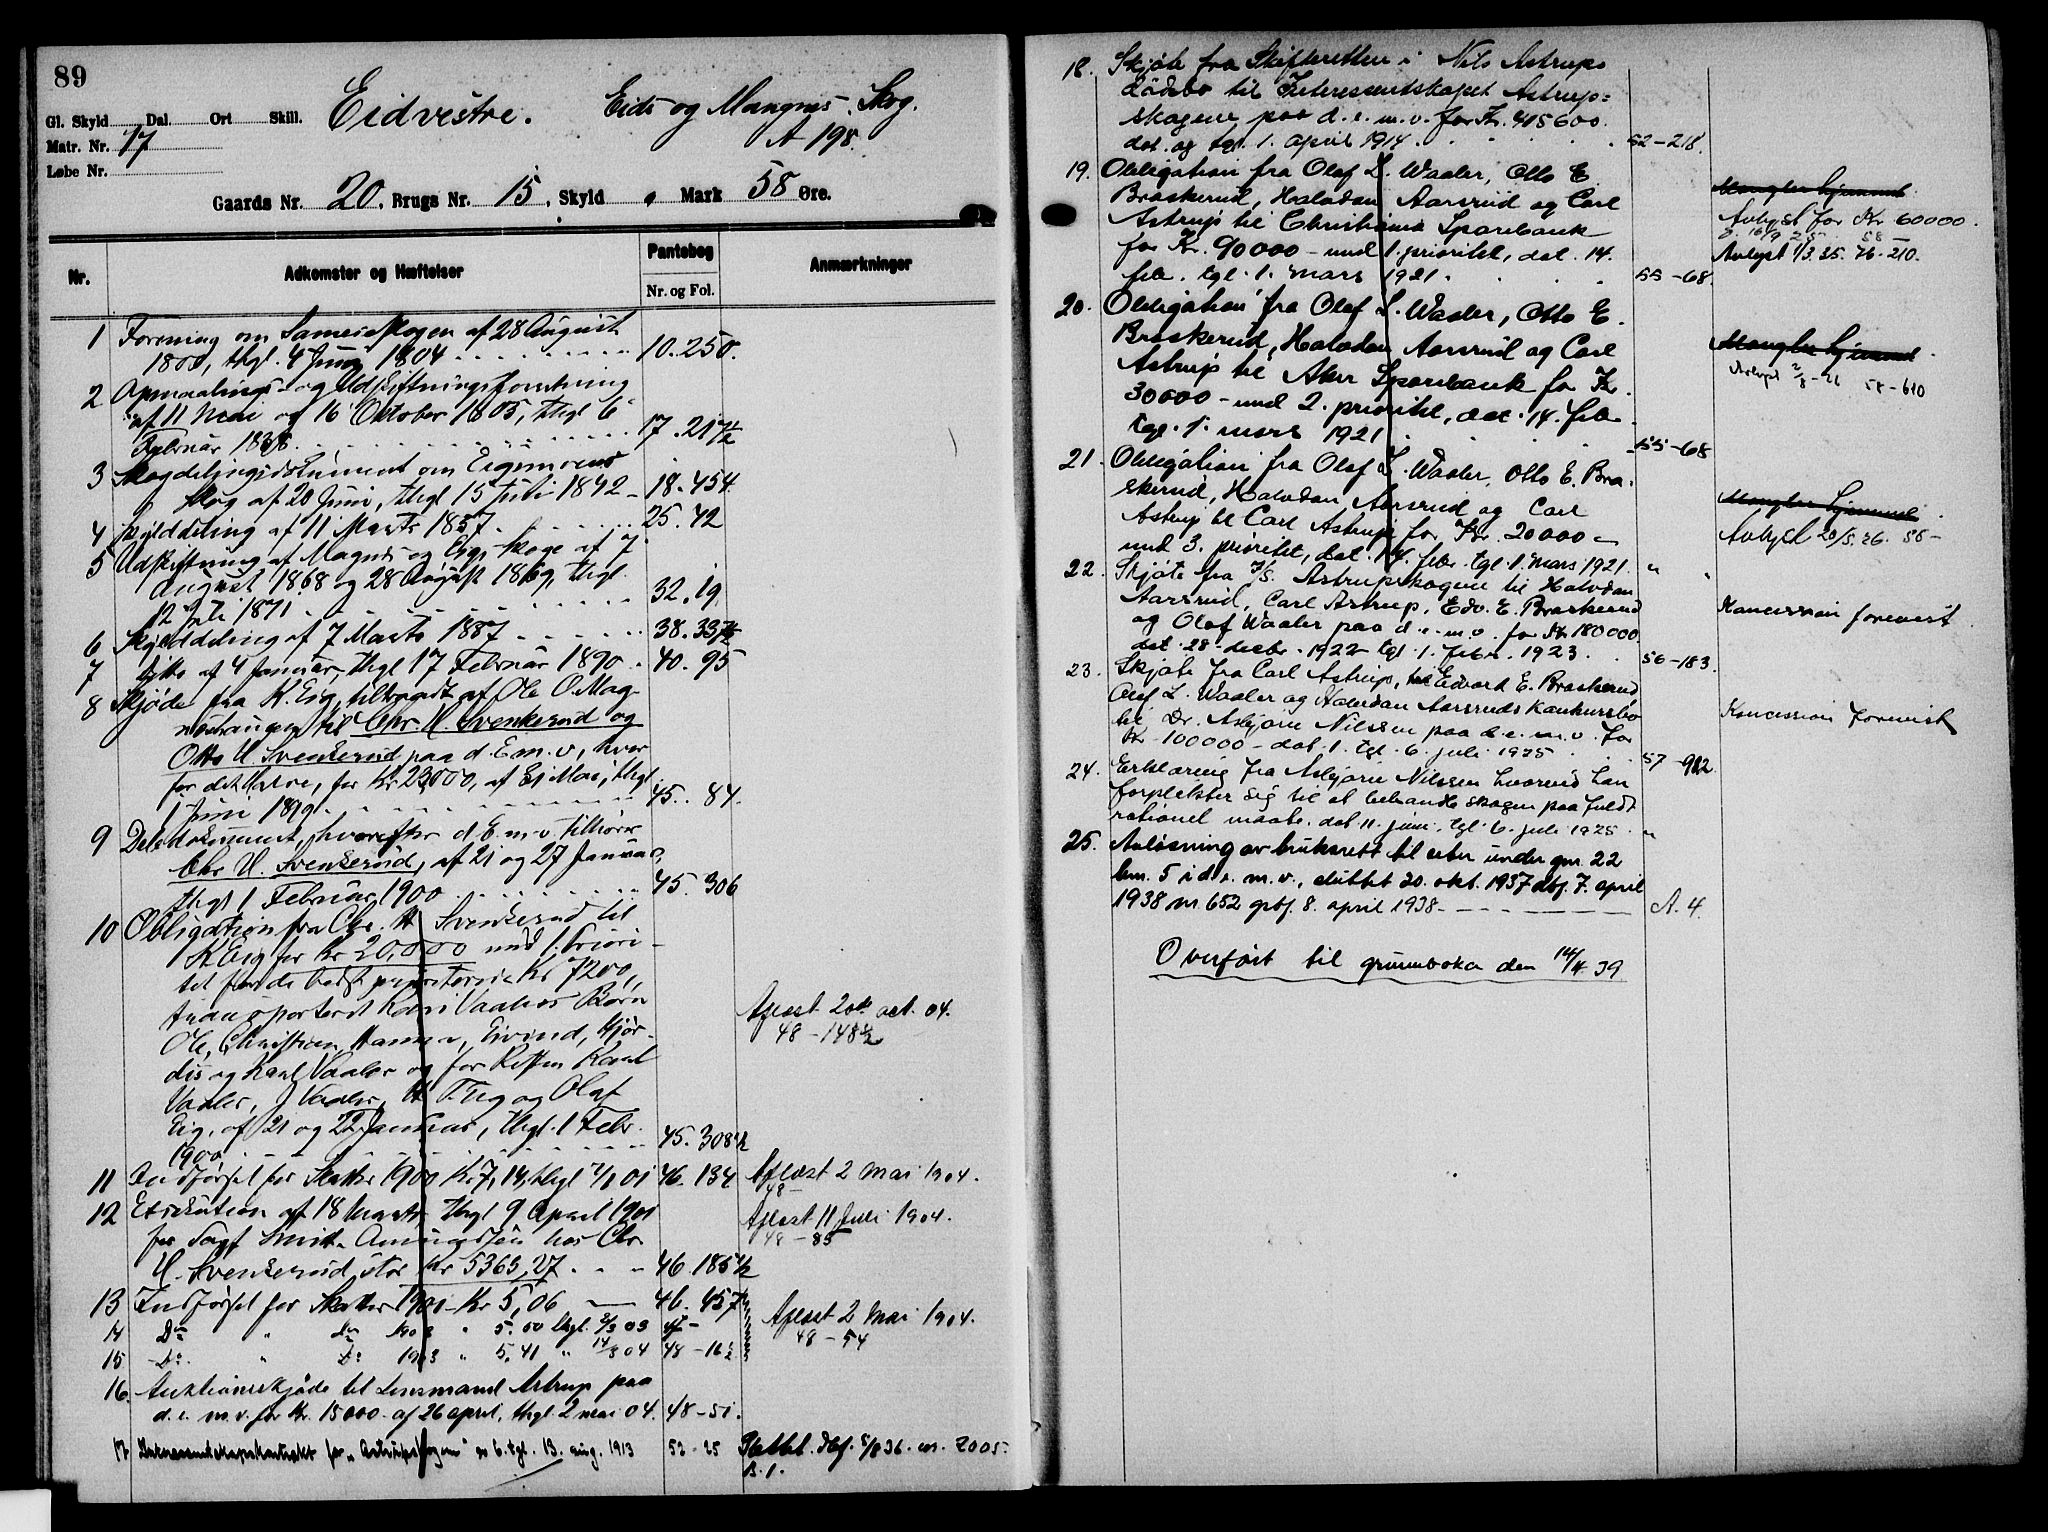 89
Gl. Skyld Dal. Ort Skill. Eidvestre. Eids og Mangnes Skog.
Matr. Nr. 17 A 198.
Løbe Nr.
Gaards Nr. 20, Brugs Nr. 15, Skyld Mark 58 Øre.
Nr. Adkomster og Hæftelser Pantebog Anmærkninger
Nr. og Fol.
1 Forening om Sameieskogen af 28 August
1800, thgl. 4 Juni 1804 10. 250.
2 Opmaalings- og Udskiftningsforretning
af 11 Mai og 16 Oktober 1805, thgl 6
Februar 1838. 17. 217 1/2
3 Skogdelingsdokument om
Skog af 20 Juni, thgl 15 Juli 1842 18. 454.
4 Skylddeling af 11 Marts 1857. 25. 42
5 Udskiftning af Magnæs og Eigs Skoge af 7
August 1868 og 28 August 1869, thgl.
12 Juli 1871 32. 19
6 Skylddeling af 7 Marts 1887 38. 337 1/2
7 Ditto af 4 Januar, thgl 17 Februar 1890 40. 95
8 Skjøde fra K. Eig, tiltraadt af Ole O. Mag-
til Chr. H. Svenkerud og
Otto H. Svenkerud paa d. E. m. v., hver
for det Halve, for Kr 23000, af Mai, thgl.
1 Juni 1899. 45. 84.
9 Deledokument, hvorefter d. E. m. v tilhører
Chr H. Svenkerud, af 21 og 27 Januar,
thgl 1 Februar 1900 45. 306
10 Obligation fra Chr. H Svenkerud til
K Eig for Kr 20,000 med 1. Priori-
tet Kr 7200,
transporteret Vaalers Børn
Ole, Christian, Hanna, Eivind, Hjør-
dis og Karl Vaaler og for Resten Karl
Vaaler, J Vaaler, og Olaf
Eig, af 21 og 22 Januar, thgl. 1 Febr.
1900 45. 308 1/2
Aflæst 20de oct. 04.
48 – 148 1/2
11 Indførsel for Skatter 1900 Kr 7,14, thgl 01 46. 134 Aflæst 2 Mai 1904.
48 –
12 Exekution af 18 Marts, thgl 9 April 1901
for Sagf Smith Amundsen hos Chr.
H. Svenkerud stor Kr 5365,27 46. 185 1/2
Aflæst 11 Juli 1904.
48 – 85
13 Indførsel for Skatter 1901 Kr 5,06 46. 457
14 Do " Do 1902 " 5.00 thgl. 03 47 –
15 Do. " Do 1903 " 5,41 " 14/3 04 48 – 16 1/2
Aflæst 2 Mai 1904.
48 – 54
16. Auktionsskjøde til Lensmand Astrup paa
d. e. m. v. for Kr. 15000. af 26 april, thgl. 2 mai 04. 48 – 51.
17. Interessentskapskontrakt for "Astrupskogene" tgl. 13. aug. 1913 52 – 25 Slettet. dbf. 5/8 36. nr. 2005
B. 1.
18. Skjøte fra Skifteretten i Nils Astrups
dødsbo til Interessentskapet Astrup=
skogene paa d. e. m. v. for Kr. 415600.
dat. og tgl. 1. april 1914. 52 – 218.
19. Obligation fra Olaf L. Waaler, Otto E
Braskerud, Halvdan Aarsrud og Carl
Astrup til Christiania Sparebank
for Kr. 90000 – med 1. prioritet, dat. 14.
feb. tgl. 1. mars 1921. 55 – 68.
Mangler hjemmel
Avlyst for Kr 60000.
Avlyst 1/3. 35. 76 – 210.
20. Obligation fra Olaf L. Waaler, Otto E.
Braskerud, Halvdan Aarsrud og Carl
Astrup til Aker Sparebank for Kr.
30000 – med 2. prioritet, dat. 14. feb
tgl. 1. mars 1921 55 – 68
Mangler hjemmel
Avlyst 2/8 – 26 58 – 610
21. Obligation fra Olaf L. Waaler, Otto E. Bra-
skerud, Halvdan Aarsrud og Carl
Astrup til Carl Astrup for Kr. 20000 –
med 3. prioritet, dat. 14. febr. tgl. 1. mars 1921. "
Mangler hjemmel
Avlyst 20/5. 26. 58 –
22. Skjøte fra I/S. Astrupskogene til Halvdan
Aarsrud, Carl Astrup, Edv. E. Braskerud
og Olaf Waaler paa d. e. m. v. for Kr 180000
dat. 28. desbr. 1922 tgl. 1. febr. 1923. 56 – 183.
Koncession forevist.
23. Skjøte fra Carl Astrup, Edvard E. Braskerud
Olaf L. Waaler og Halvdan Aarsruds konkursbo
til Dr. Asbjørn Nilssen paa d. e. m. v. for
Kr 100000 – dat. 1. tgl. 6. juli 1925 57 – 912.
Koncession forevist
24. Erklæring fra Asbjørn Nilssen hvorved han
forplikter sig til at behandle skogen paa fuldt
rationel maate. dat. 11. juni, tgl. 6. juli 1925. "
25. Avløsning av bruksrett til seter under gnr. 22
bnr. 5 i d. e. m. v., sluttet 20. okt. 1937 dbf. 7. april
1938 nr. 652 grbf. 8. april 1938 – A. 4.
Overført til grunnboka den 14/4 39